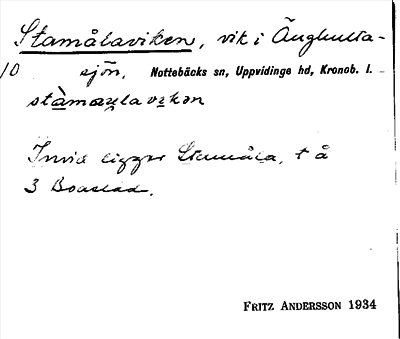 Stamålaviken, vik i Änghulta-
10 sjön, Nottebäcks sn, Uppvidinge hd, Kronob. l.
Invid ligger Stamåla, t å
3 Boastad.
FRITZ ANDERSSON 1934